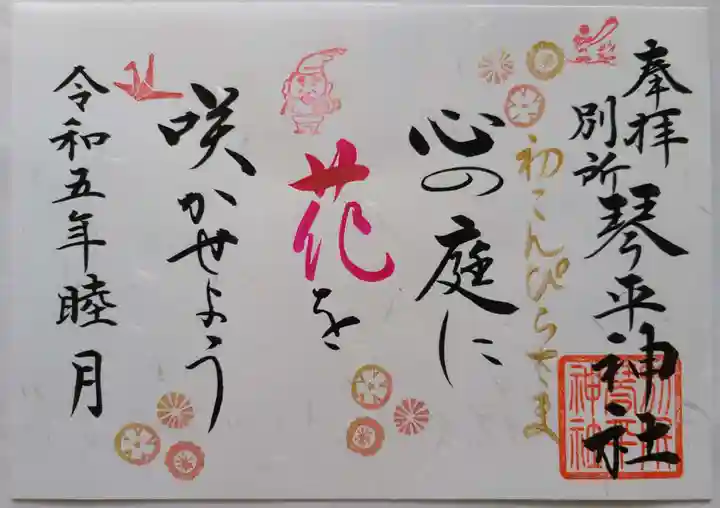 奉拝
別所琴平神社
初こんぴらさま
心の庭に
花を
咲かせよう
令和五年睦月